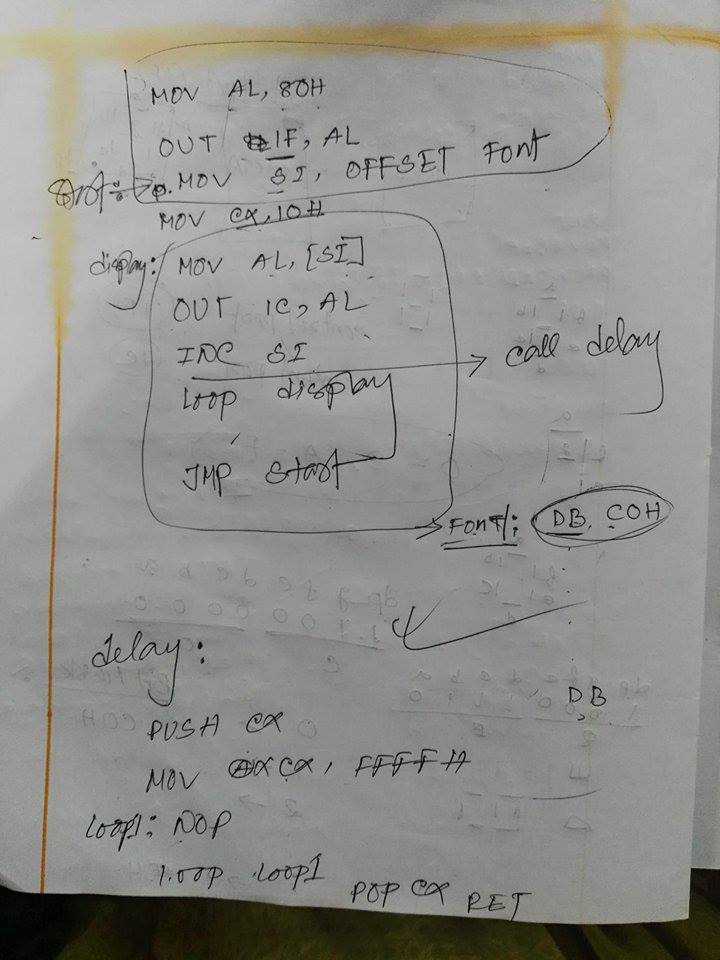 MOV AL, 80H
OUT 1F, AL
Start: MOV SI, OFFSET FONT
MOV CX, 10H
display: MOV AL, [SI]
OUT 1C, AL
INC SI
call delay
LOOP display
JMP start
FONT: DB C0H
delay:
DB
PUSH CX
MOV CX, FFFF H
loop1: NOP
LOOP LOOP1 POP CX RET